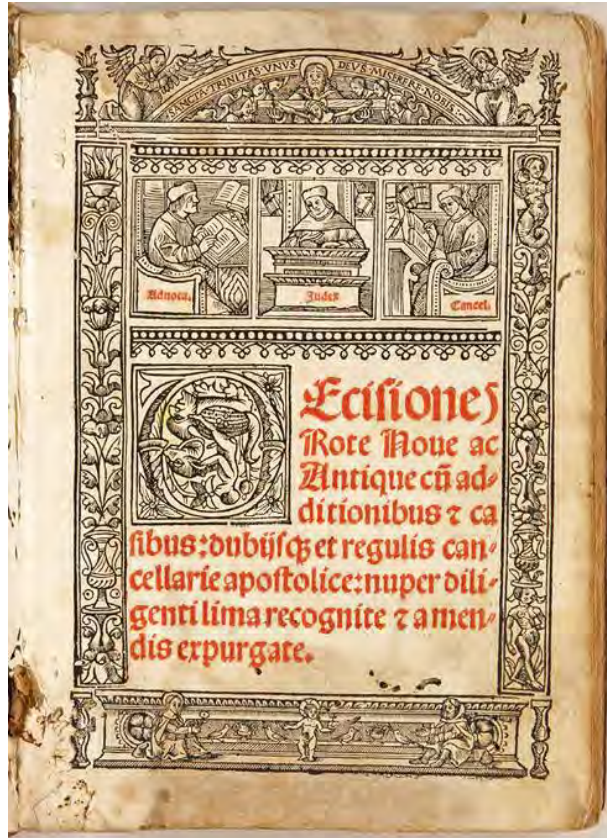 SANCTA·TRINITAS·VNVS·DEVS·MISERERE·NOBIS·
Aduoca.
Judex
Cancel.
Decisiones
Rote Noue ac
Antique cū ad⸗
ditionibus ⁊ ca
sibus: dubijsqꝫ et regulis can⸗
cellarie apostolice: nuper dili⸗
genti lima recognite ⁊ a men⸗
dis expurgate.